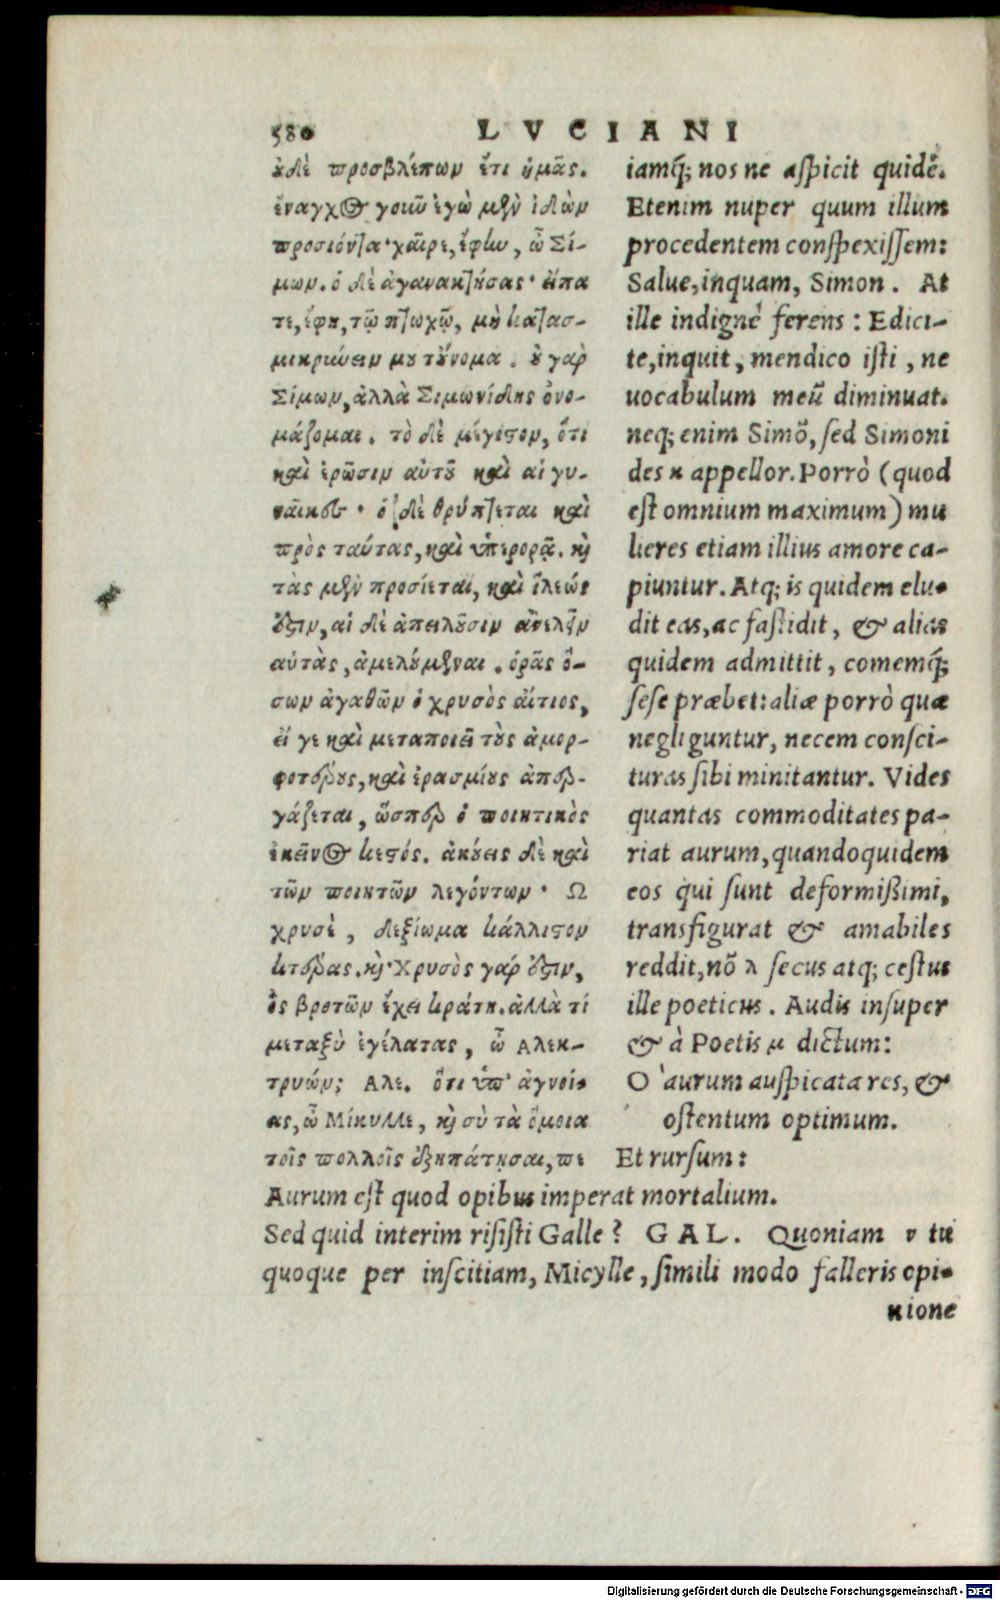 580 LVCIANI
ȣδὲ προσβλέπων ἔτι ἡμᾶς.
ἔναγχος γοιῶ ἐγὼ μὲν ἰδὼν
προσιόντα· χαῖρε, ἔφlω, ὦ Σί-
μων. ὁ δὲ ἀγανακτήσας· εἴπα
τε, ἔφη, τῷ πτωχῷ, μὴ κατασ-
μικρύνειν μȣ τȣ̓́νομα. ȣ̓ γὰρ
Σίμων, ἀλλὰ Σιμωνίδης ὀνο-
μάζομαι. τὸ δὲ μέγιϛον, ὅτι
καὶ ἐρῶσιν αὐτȣ͂ καὶ αἱ γυ-
ναῖκες· ὁ δὲ θρύπτεται καὶ
πρὸς ταύτας, καὶ ὑπερορᾷ. ϗ̀
τὰς μὲν προσίεται, καὶ ἵλεώς
ἐϛιν, αἱ δὲ ἀπειλȣ͂σιν ἀνελεῖν
αὑτὰς, ἀμελȣ́μεναι. ὁρᾷς ὅ-
σων ἀγαθῶν ὁ χρυσὸς αἴτιος,
εἴ γε καὶ μεταποιεῖ τȣ̀ς ἀμορ-
φοτέρȣς, καὶ ἐρασμίȣς ἀπερ-
γάζεται, ὥσπερ ὁ ποιητικὸς
ἐκεῖνος κεϛός. ἀκȣ́εις δὲ καὶ
τῶν ποιητῶν λεγόντων· Ω
χρυσὲ, δεξίωμα κάλλιϛον
κτέρας. ϗ̀· Χρυσὸς γάρ ἐϛιν,
ὃς βροτῶν ἔχει κράτη. ἀλλὰ τί
μεταξὺ ἐγέλασας, ὦ Αλεκ-
τρυών; Αλε. ὅτι ὑπ' ἀγνοί-
ας, ὦ Μίκυλλε, ϗ̀ σὺ τὰ ὅμοια
τοῖς πολλοῖς ἐξηπάτησαι, πε
iamq́; nos ne aſpicit quidē.
Etenim nuper quum illum
procedentem conſpexiſſem:
Salue, inquam, Simon. At
ille indignè ferens: Edici-
te, inquit, mendico iſti, ne
uocabulum meū diminuat.
neq; enim Simō, ſed Simoni
des κ appellor. Porrò (quod
eſt omnium maximum) mu
lieres etiam illius amore ca-
piuntur. Atq; is quidem elu-
dit eas, ac faſtidit, & alias
quidem admittit, comemq́;
ſeſe præbet: aliæ porrò quæ
negliguntur, necem conſci-
turas ſibi minitantur. Vides
quantas commoditates pa-
riat aurum, quandoquidem
eos qui ſunt deformißimi,
transfigurat & amabiles
reddit, nō λ ſecus atq; ceſtus
ille poeticus. Audis inſuper
& à Poetis μ dictum:
O aurum auſpicata res, &
oſtentum optimum.
Et rurſum:
Aurum eſt quod opibus imperat mortalium.
Sed quid interim riſiſti Galle? GAL. Quoniam ν tu
quoque per inſcitiam, Micylle, ſimili modo falleris opi-
nione
Digitalisierung gefördert durch die Deutsche Forschungsgemeinschaft - DFG